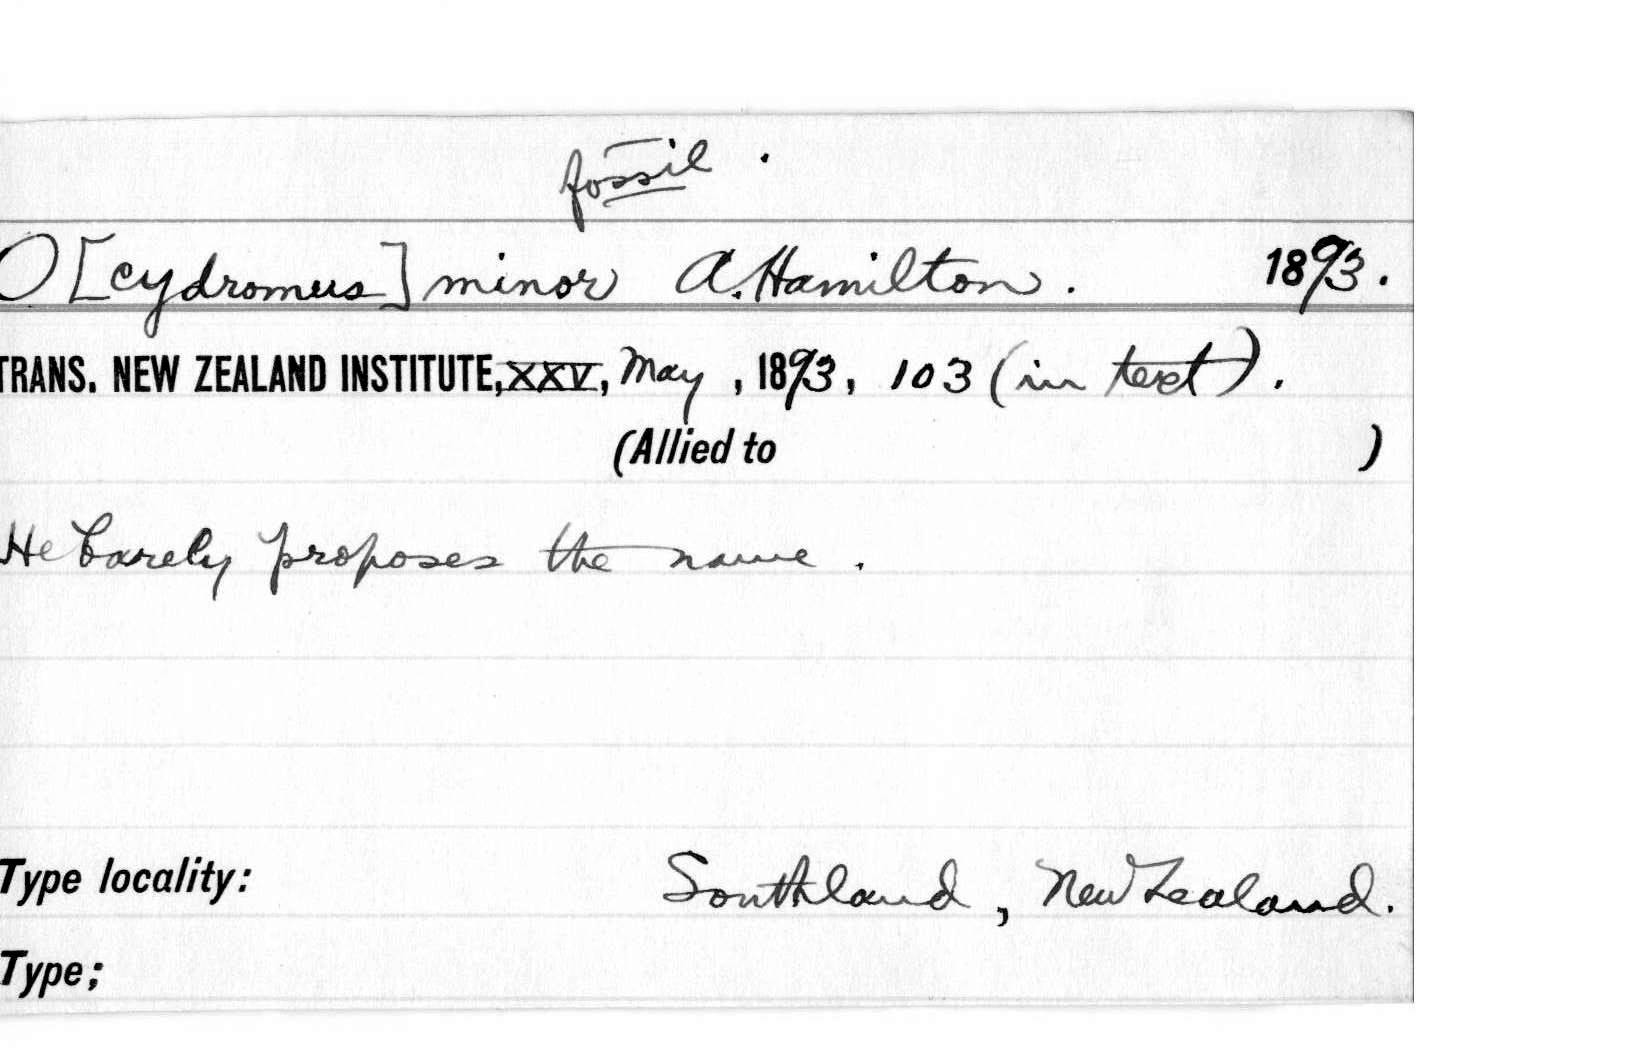 fossil .
O[cydromus] minor A. Hamilton. 1893.
TRANS. NEW ZEALAND INSTITUTE, XXV, May, 1893, 103 (in text).
(Allied to )
He barely proposes the name .
Type locality: Southland, New Zealand.
Type;